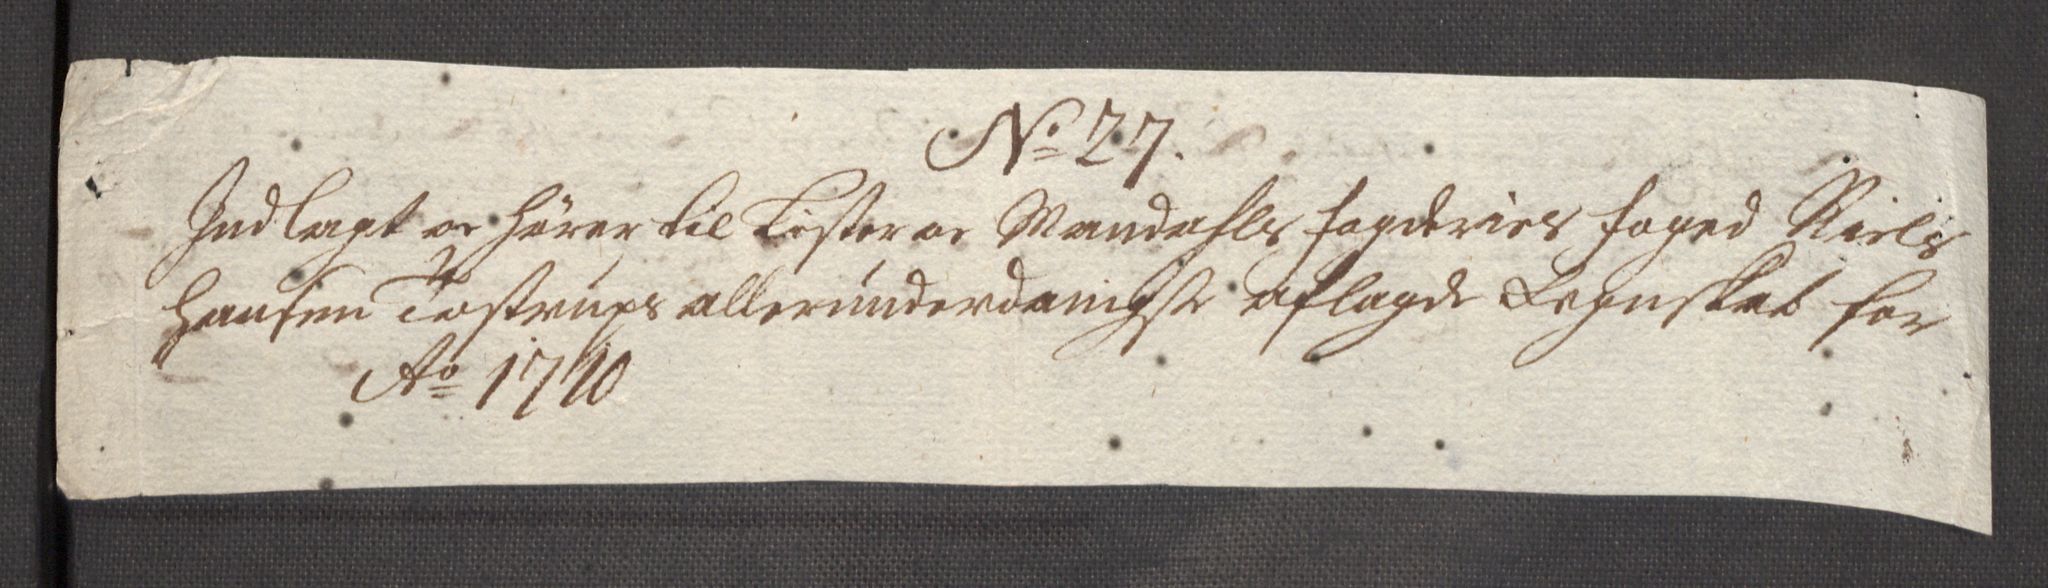 No 27.
Indlagt oc hører til Lister oc Mandahls fogderies foged Niels
Hansen Tostrups allerúnderdanigste aflagde Regnskab for
Ao 1710